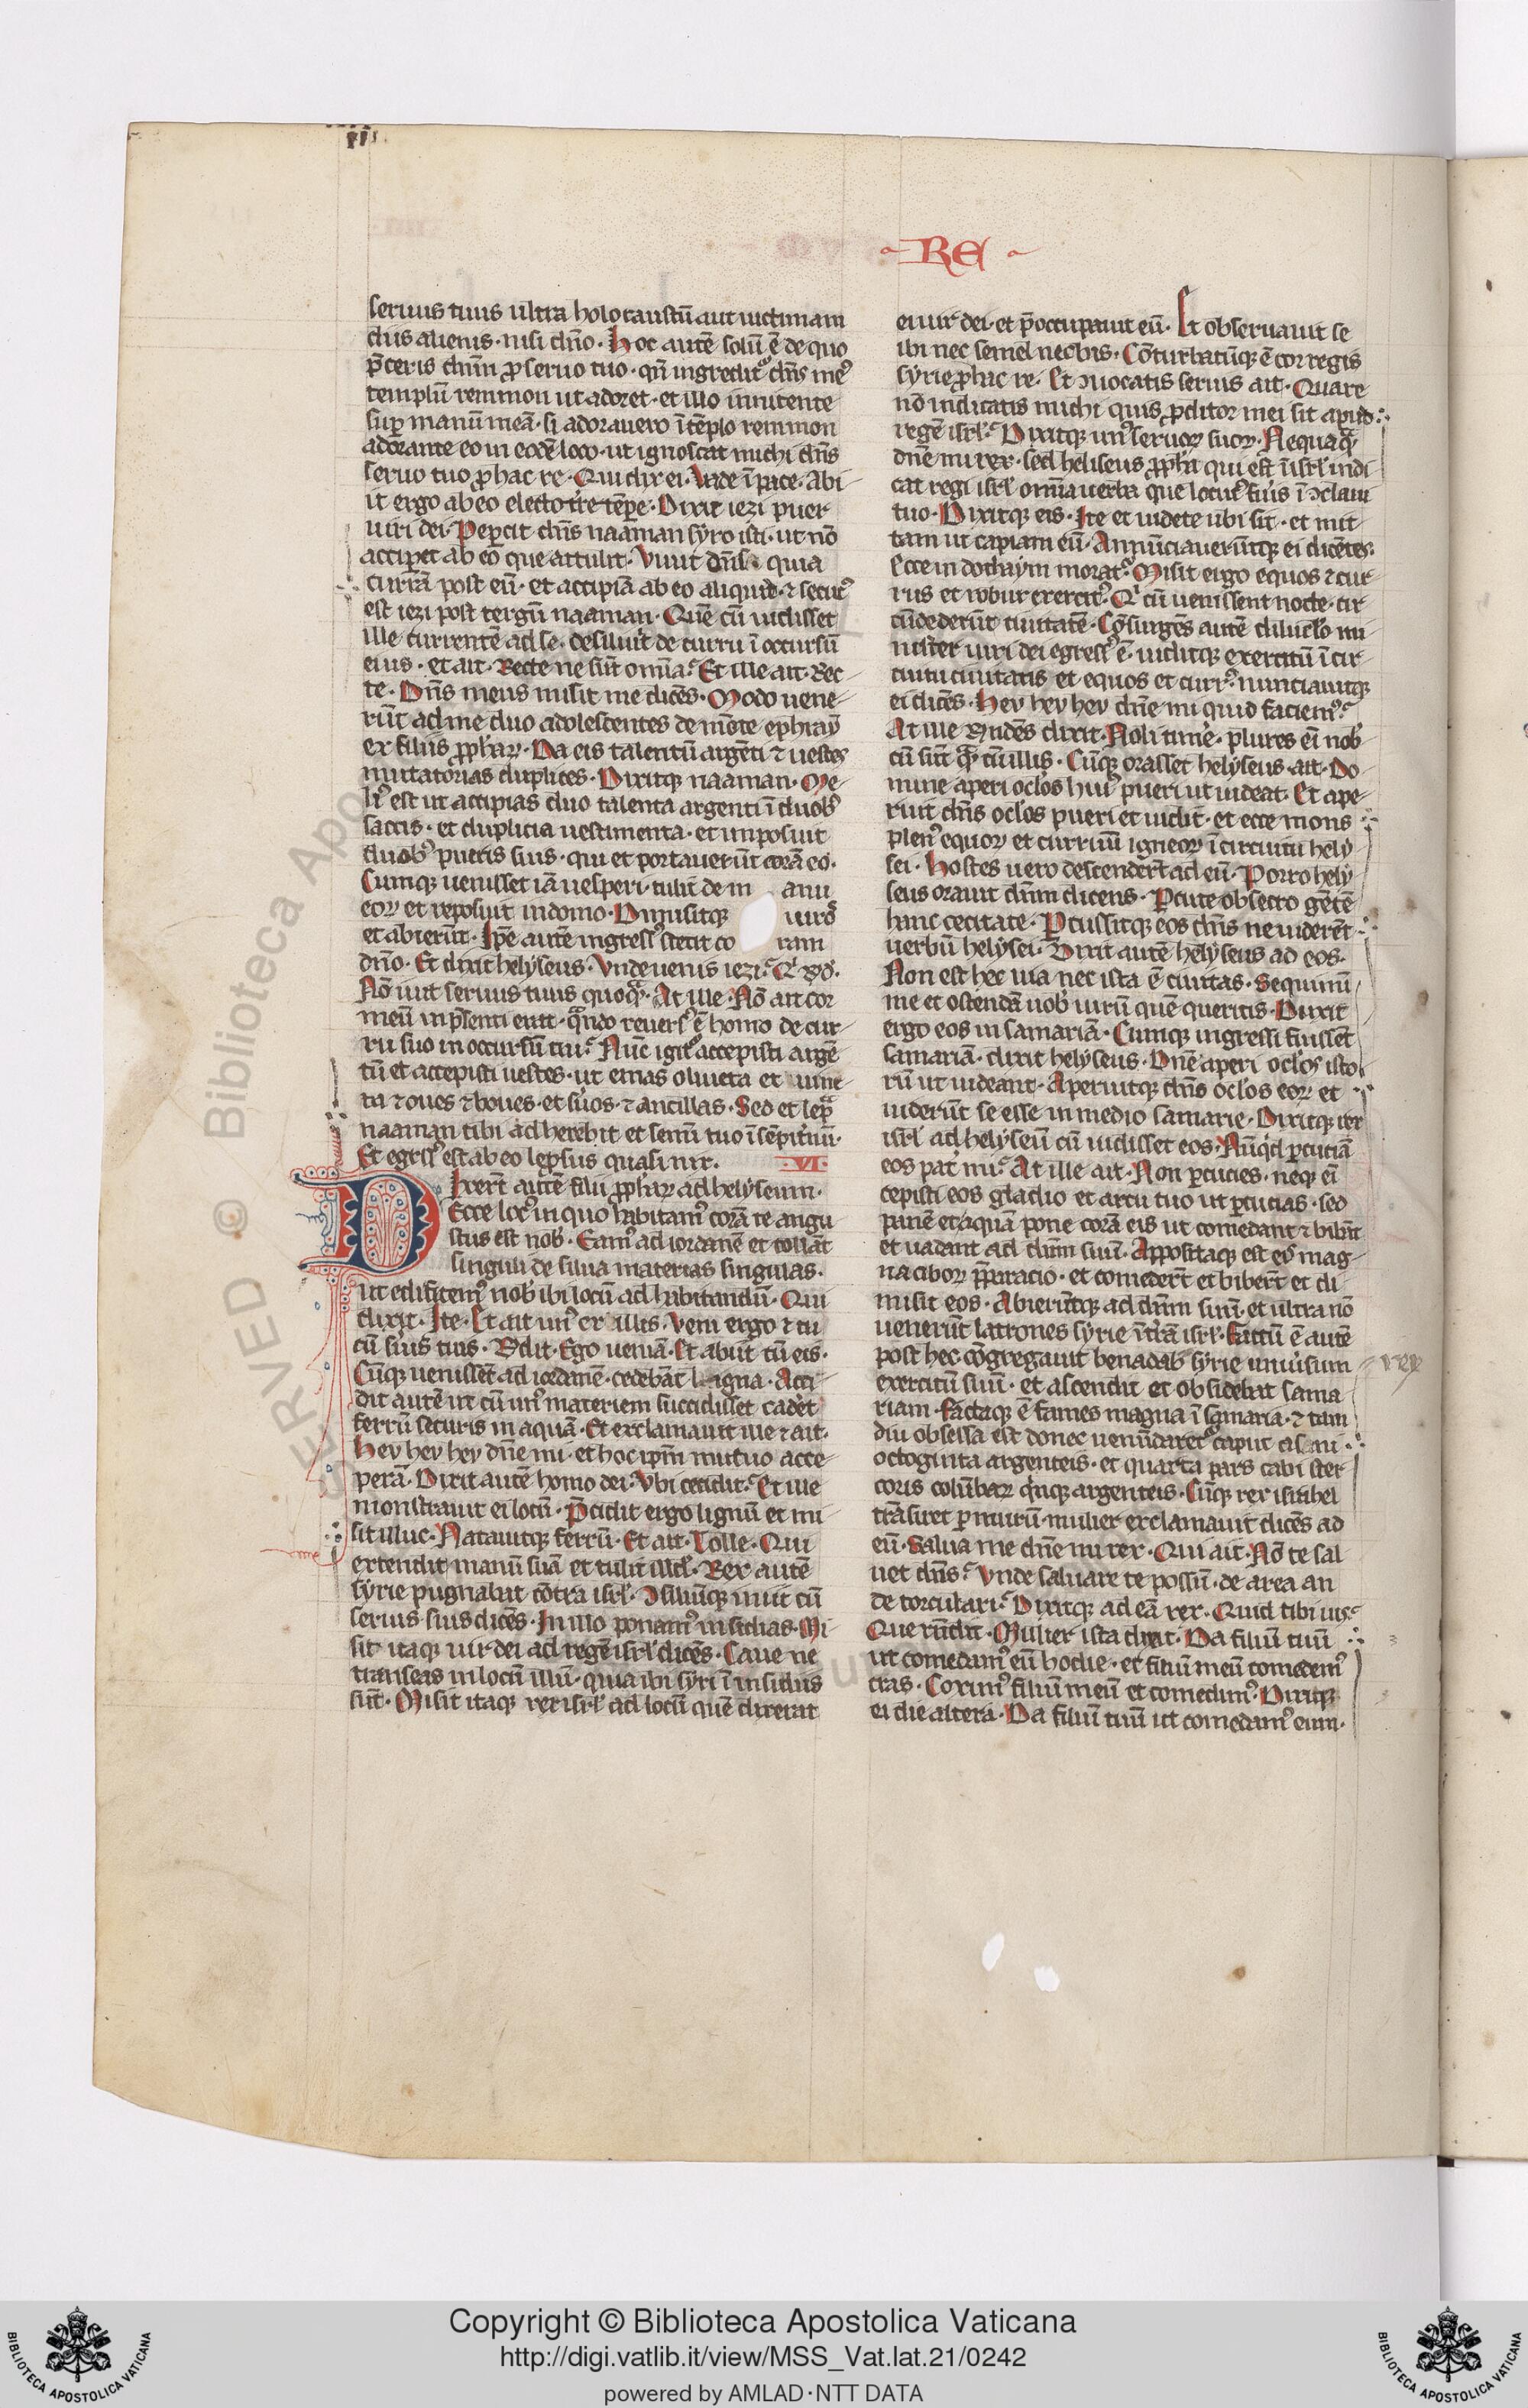 RE
seruus tuus ultra holocaustū aut uictimam
diis alienis · nisi dn̄o · Hoc autē solū ē de quo
p̄ceris dn̄m ꝓ seruo tuo · qn̄ ingredit᷒ dn̄s me᷒
templū remmon ut adoret · et illo innitente
sup̱ manū meā · si adorauero ī tēplo remmon
adorante eo in eodē loco · ut ignoscat michi dn̄s
seruo tuo ꝓ hac re · Qui dix̄ ei · Vade ī pace · Abi
it ergo ab eo electo tr̄e tēpe · Dixit iezi puer
uiri dei · Pepercit dn̄s naaman syro isti · ut nō
accip̱et ab eo que attulit · Viuit dn̄s · quia
currā post eū · et accipiā ab eo aliquid · ⁊ secut᷒
est iezi post tergū naaman · Quē cū uidisset
ille currentē ad se · desiluit de curru ī occursū
eius · et ait · Recte ne sūt om̄a · Et ille ait · Rec
te · Dn̄s meus misit me dicēs · Modo uene
rūt ad me duo adolescentes de mōte ephraȳ
ex filiis ꝓphaꝝ · Da eis talentū argēti ⁊ uestes
mutatorias duplices · Dixitqꝫ naaman · Me
li᷒ est ut accipias duo talenta argenti ī duob᷒
saccis · et duplicia uestimenta · et imposuit
duob᷒ pueris suis · qui et portauerūt corā eo ·
Cumqꝫ uenisset iā uesperi · tulit de m anu
eoꝝ et reposuit in domo · Dimisitqꝫ uiros
et abierūt · Ip̄e autē ingress᷒ stetit co ram
dn̄o · Et dixit helyseus · Vnde uenis iezi ·
Nō iuit seruus tuus quoqꝫ · At ille · Nō ait cor
meū in p̄senti erat · qn̄do reuers᷒ ē homo de cur
ru suo in occursū tui · Nūc igit᷒ accepisti argē
tū et accepisti uestes · ut emas oliueta et uine
ta ⁊ oues ⁊ boues · et s̄uos · ⁊ ancillas · Sed et lepᵃ
naaman tibi adherebit et semī tuo ī sēpit̄nū ·
Et egress᷒ est ab eo leprosus quasi nix · · VI ·
Dixer̄t autē filii ꝓphaꝝ ad helyseum ·
Ecce loc᷒ in quo habitam᷒ corā te angu
stus est nob̄ · Eam᷒ ad iordanē et tollāt
singuli de silua materias singulas ·
ut edificem᷒ nob̄ ibi locū ad habitandū · Qui
dixit · Ite · Et ait un᷒ ex illis · Veni ergo ⁊ tu
cū s̄uis tuis · Rn̄dit · Ego ueniā · Et abiit cū eis ·
Cūqꝫ uenissēt ad iordanē · cedebāt ligna · Acci
dit autē ut cū un᷒ materiem succidisset cadēt
ferrū securis in aquā · Et exclamauit ille ⁊ ait ·
Hey hey hey dn̄e mi · et hoc ip̄m mutuo acce
perā · Dixit autē homo dei · Vbi cecidit · Et ille
monstrauit ei locū · P̄cidit ergo lignū et mi
sit illuc · Natauitqꝫ ferrū · Et ait · Tolle · Qui
extendit manū suā et tulit illd̄ · Rex autē
syrie pugnabat cōtra isr̄l · Ɔsiliūqꝫ iniit cū
seruis suis dicēs · In illo ponam᷒ insidias · Mi
sit itaqꝫ uir dei ad regē isr̄l dicēs · Caue ne
transeas in locū illū · quia ibi syri ī insidiis
sūt · Misit itaqꝫ rex isr̄l ad locū quē dixerat
ei uir dei · et p̄occupauit eū · Et obseruauit se
ibi nec semel nec bis · Cōturbatūqꝫ ē cor regis
syrie ꝓ hac re · Et ɔuocatis seruis ait · Quare
nō indicatis michi quis ꝓditor mei sit apud
regē isr̄l · Dixitqꝫ un᷒ seruoꝝ suoꝝ · Nequaqᵃ
dn̄e mi rex · sed heliseus ꝓpha qui est ī isr̄l indi
cat regi isr̄l om̄ia uerba que locut᷒ fuis ī ɔclaui
tuo · Dixitqꝫ eis · Ite et uidete ubi sit · et mit
tam ut capiam eū · Annūciauerūtqꝫ ei dicētes ·
Ecce in dothaym morat᷒ · Misit ergo equos ⁊ cur
rus et robur exercit᷒ · Qⁱ cū uenissent nocte · cir
cūdederūt ciuitatē · Cōsurgēs autē diluc̄lo mi
nister uiri dei egress᷒ ē · uiditqꝫ exercitū ī cir
cuitu ciuitatis et equos et curr᷒ · nunciauitqꝫ
ei dicēs · Hey hey hey dn̄e mi quid faciem᷒ ·
At ille rn̄dēs dixit · Noli tim̄e · plures eī nob̄
cū sūt qᵃ cū illis · Cūqꝫ orasset helyseus ait · Do
mine aperi oclos hui᷒ pueri ut uideat · Et ape
ruit dn̄s oclos pueri et uidit · et ecce mons
plen᷒ equoꝝ et curruū igneoꝝ ī circuitu hely
sei · Hostes uero descender̄t ad eū · Porro hely
seus orauit dn̄m dicens · Pcute obsecro gētē
hanc cecitate · Pcussitqꝫ eos dn̄s ne uiderēt
uerbū helysei · Dixit autē helyseus ad eos ·
Non est hec uia nec ista ē ciuitas · Sequimī
me et ostendā uob̄ uirū quē queritis · Duxit
ergo eos in samariā · Cumqꝫ ingressi fuissēt
samariā · dixit helyseus · Dn̄e aperi oclos isto
rū ut uideant · Aperuitqꝫ dn̄s oclos eoꝝ et
uiderūt se esse in medio samarie · Dixitqꝫ rex
isr̄l ad helyseū cū uidisset eos · Nūqⁱd p̱cutiā
eos pat̄ mi · At ille ait · Non p̱cuties · neqꝫ eī
cepisti eos gladio et arcu tuo ut p̱cutias · sed
panē et aquā pone corā eis ut comedant ⁊ bibāt
et uadant ad dn̄m suū · Appositaqꝫ est eis mag
na ciboꝝ p̄paratio · et comeder̄t et biber̄t et di
misit eos · Abierūtqꝫ ad dn̄m suū · et ultra nō
uenerūt latrones syrie ī t̄rā isr̄l · Factū ē autē
post hec cōgregauit benadab syrie uniūsum
rex
exercitū suū · et ascendit et obsidebat sama
riam · Factaqꝫ ē fames magna ī samaria · ⁊ tam
diu obsessa est donec uenūdaret᷒ caput asini
octoginta argenteis · et quarta pars cabi ster
coris colūbaꝝ qⁱnqꝫ argenteis · Cūqꝫ rex israhel
trāsiret p̱ murū · mulier exclamauit dicēs ad
eū · Salua me dn̄e mi rex · Qui ait · Nō te sal
uet dn̄s · Vnde saluare te possū · de area an
de torculari · Dixitqꝫ ad eā rex · Quid tibi uis ·
Que rn̄dit · Mulier ista dixit · Da filiū tuū
ut comedam᷒ eū hodie · et filiū meū comedem᷒
cras · Coxim᷒ filiū meū et comedim᷒ · Dixitqꝫ
ei die altera · Da filiū tuū ut comedam᷒ eum ·
© Biblioteca Apo
ERVED
Copyright © Biblioteca Apostolica Vaticana
http://digi.vatlib.it/view/MSS_Vat.lat.21/0242
powered by AMLAD·NTT DATA
BIBLIOTECA APOSTOLICA VATICANA
BIBLIOTECA APOSTOLICA VATICANA